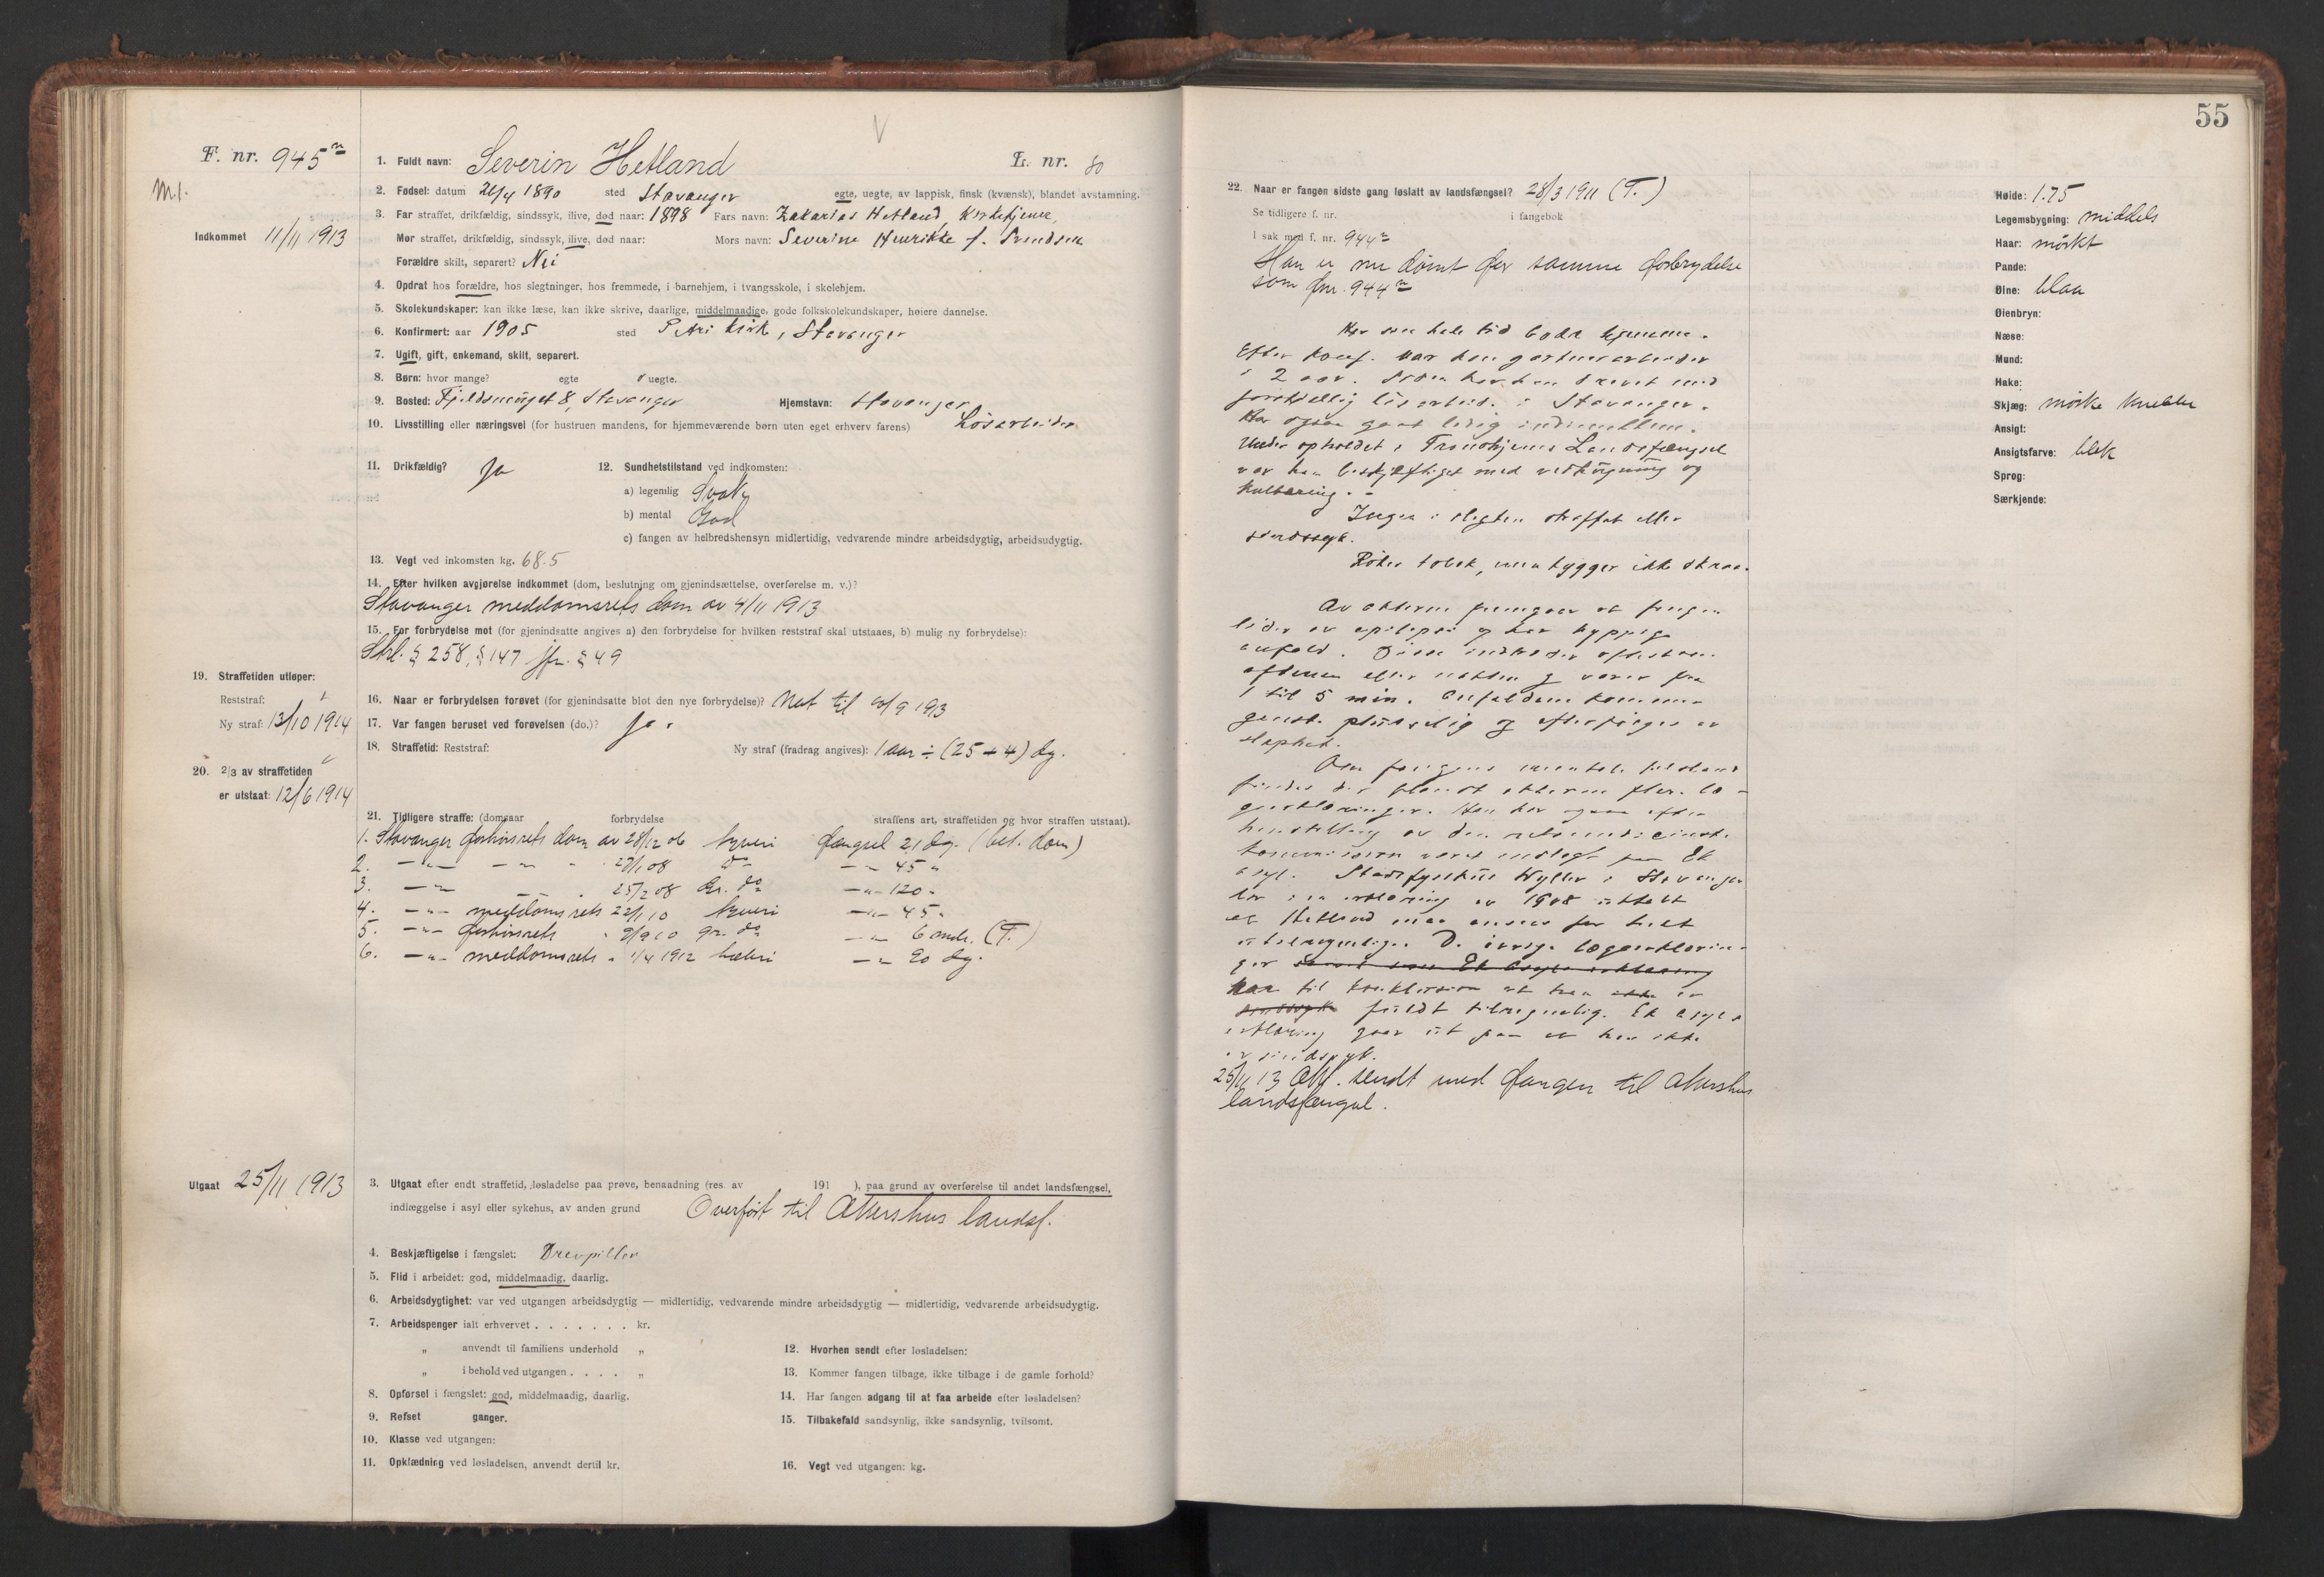 55
F. nr. 945
M.1.
1. Fuldt navn: Severin Hetland
L. nr. 80
2. Fødsel: datum 21/4 1890 sted Stavanger egte, uegte, av lappisk, finsk (kvænsk), blandet avstamning.
3. Far straffet, drikfældig, sindssyk, ilive, død naar: 1898 Fars navn: Zakarias Hetland, Kirketjener,
Indkommet 11/11 1913
Mor straffet, drikfældig, sindssyk, ilive, død naar: Mors navn: Severine Henrikke f. Svendsen
Forældre skilt, separert? Nei
4. Opdrat hos forældre, hos slegtninger, hos fremmede, i barnehjem, i tvangsskole, i skolehjem.
5. Skolekundskaper: kan ikke læse, kan ikke skrive, daarlige, middelmaadige, gode folkskolekundskaper, høiere dannelse.
6. Konfirmert: aar 1905 sted Petri kirk, Stavanger
7. Ugift, gift, enkemand, skilt, separert.
8. Børn: hvor mange? egte uegte.
9. Bosted: 8, Stavanger Hjemstavn: Stavanger
10. Livsstilling eller næringsvei (for hustruen mandens, for hjemmeværende børn uten eget erhverv farens) Løsarbeider
11. Drikfældig? Ja
12. Sundhetstilstand ved indkomsten:
a) legemlig Svak
b) mental God
c) fangen av helbredshensyn midlertidig, vedvarende mindre arbeidsdygtig, arbeidsudygtig.
13. Vegt ved inkomsten kg. 68.5
14. Efter hvilken avgjørelse indkommet (dom, beslutning om gjenindsættelse, overførelse m. v.)?
Stavanger meddomsrets dom av 4/11 1913
15. For forbrydelse mot (for gjenindsatte angives a) den forbrydelse for hvilken reststraf skal utstaaes, b) mulig ny forbrydelse):
Strl. § 258, § 147 jfr. § 49
19. Straffetiden utløper:
Reststraf:
Ny straf: 13/10 1914
16. Naar er forbrydelsen forøvet (for gjenindsatte blot den nye forbrydelse)? Nat til 9 1913
17. Var fangen beruset ved forøvelsen (do.)? Ja.
18. Straffetid: Reststraf: Ny straf (fradrag angives): 1 aar ÷ (25 + 4) dg.
20. 2/3 av straffetiden
er utstaat: 12/6 1914
21. Tidligere straffe: (domsaar forbrydelse straffens art, straffetiden og hvor straffen utstaat).
1. Stavanger forhørsrets dom av 28/12 06 tyveri fængsel 21 dg. (bet. dom)
2. — " — — " 29/1 08 do — " 45 "
3. — " — 25/2 08 gr. do — " — 120 "
4. — " — meddomsrets 22/1 10 tyveri — " — 45 "
5. — " — forhørsrets " 9/9 10 gr. do — " 6 mdr. (T.)
6. — " — meddomsrets " 1/4 1912 hæleri — " 90 dg.
Utgaat 25/11 1913
3. Utgaat efter endt straffetid, løsladelse paa prøve, benaadning (res. av 191 ), paa grund av overførelse til andet landsfængsel,
indlæggelse i asyl eller sykehus, av anden grund Overført til Akershus landsf.
4. Beskjæftigelse i fængslet: Drevpiller
5. Flid i arbeidet: god, middelmaadig, daarlig.
6. Arbeidsdygtighet: var ved utgangen arbeidsdygtig — midlertidig, vedvarende mindre arbeidsdygtig — midlertidig, vedvarende arbeidsudygtig.
7. Arbeidspenger ialt erhvervet . . . . . . . kr.
" anvendt til familiens underhold "
" i behold ved utgangen . . . . "
8. Opførsel i fængslet: god, middelmaadig, daarlig.
9. Refset ganger.
10. Klasse ved utgangen:
11. Opklædning ved løsladelsen, anvendt dertil kr.
12. Hvorhen sendt efter løsladelsen:
13. Kommer fangen tilbage, ikke tilbage i de gamle forhold?
14. Har fangen adgang til at faa arbeide efter løsladelsen?
15. Tilbakefald sandsynlig, ikke sandsynlig, tvilsomt.
16. Vegt ved utgangen: kg.
22. Naar er fangen sidste gang løslatt av landsfængsel? 28/3 1911 (T.)
Se tidligere f. nr. i fangebok
I sak med f. nr. 944
Han er nu dømt for samme forbrydelse
som fnr. 944
Har sin hele tid bodd hjemme.
Efter konf. var han gartnerarbeider
i 2 aar. Siden har han drevet med
forskjellig løsarbeid i Stavanger.
Har ogsaa gaat ledig indimellem.
Under opholdet i Trondhjems Landsfængsel
var han beskjæftiget med vedhugning og
kulbæring.
Ingen i slegten straffet eller
sindssyk.
Røker tobak, men tygger ikke skraa.
Av akterne fremgaar at fangen
lider av epilepsi og har hyppige
anfald. Disse indtræder oftest om
aftenen eller natten og varer fra
1 til 5 min. Anfaldene kommer
gjerne pludselig og efterfølges av
slaphet.
Om fangens mentale tilstand
findes der blandt akterne flere læ-
geerklæringer. Han har ogsaa efter
henstilling av den retsmedicinske
kommission været indlagt paa Ek
asyl. Stadsfysikus Wyller i Stavanger
har i en erklæring av 1908 uttalt
at Hetland maa ansees for helt
utilregnelig. De øvrige lægeerklærin-
ger samt som Ek Asyls erklæring
har til konklusion at han ikke er
sindssyk fuldt tilregnelig. Ek asyls
erklæring gaar ut paa at han ikke
er sindssyk.
25/11 13 Akt. sendt med fangen til Akershus
landsfængsel.
Høide: 1.75
Legemsbygning: middels
Haar: mørkt
Pande:
Øine: blaa
Øienbryn:
Næse:
Mund:
Hake:
Skjæg: mørke knebler
Ansigt:
Ansigtsfarve: blek
Sprog:
Særkjende: